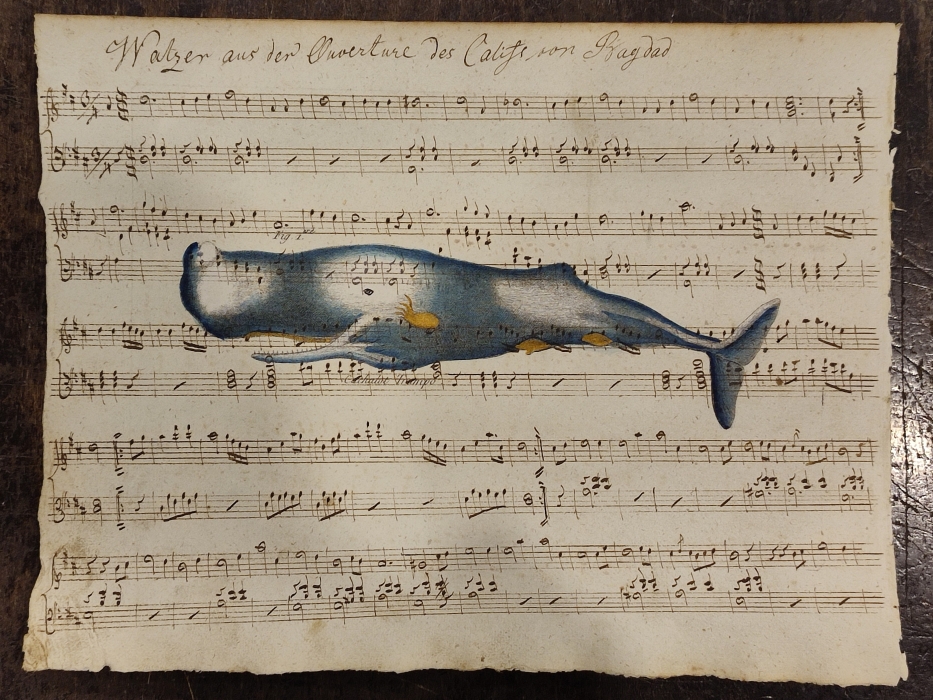 Walzer aus der Ouverture des Califs von Bagdad
Fig. 1.